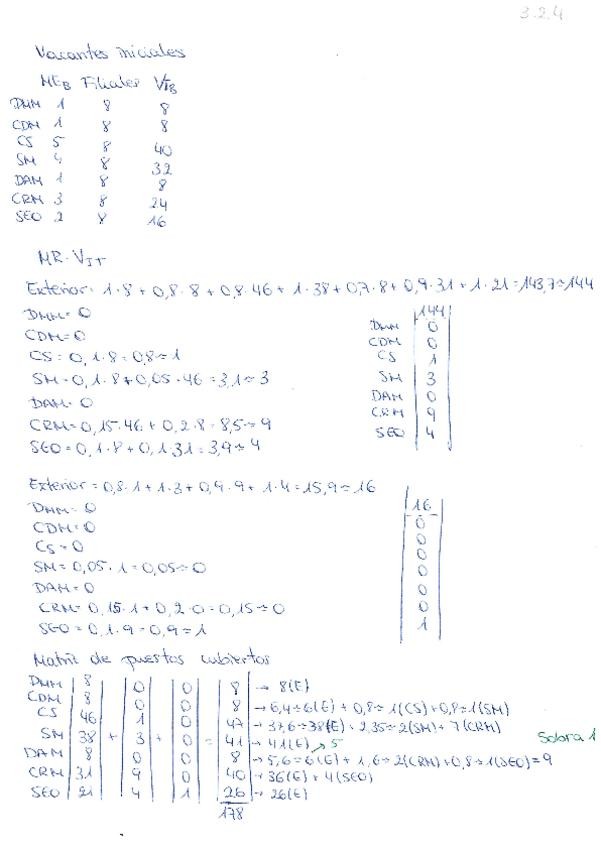 3.2.4
Vacantes iniciales
MEB Filiales VIB
DMM 1 8 8
CDM 1 8 8
CS 5 8 40
SM 4 8 32
DAM 1 8 8
CRM 3 8 24
SEO 2 8 16
MR·VIT
Exterior = 1·8 + 0,8·8 + 0,8·46 + 1·38 + 0,7·8 + 0,9·31 + 1·21 = 143,7 ≈ 144
DMM = 0
CDM = 0
CS = 0,1·8 = 0,8 ≈ 1
SM = 0,1·8 + 0,05·46 = 3,1 ≈ 3
DAM = 0
CRM = 0,15·46 + 0,2·8 = 8,5 ≈ 9
SEO = 0,1·8 + 0,1·31 = 3,9 ≈ 4
144
DMM 0
CDM 0
CS 1
SM 3
DAM 0
CRM 9
SEO 4
Exterior = 0,8·1 + 1·3 + 0,9·9 + 1·4 = 15,9 ≈ 16
DMM = 0
CDM = 0
CS = 0
SM = 0,05·1 = 0,05 ≈ 0
DAM = 0
CRM = 0,15·1 + 0,2·0 = 0,15 ≈ 0
SEO = 0,1·9 = 0,9 ≈ 1
16
0
0
0
0
0
0
1
Matriz de puestos cubiertos
DMM 8 0 0 8 → 8(E)
CDM 8 0 0 8 → 6,4 ≈ 6(E) + 0,8 ≈ 1(CS) + 0,8 ≈ 1(SM)
CS 46 1 0 47 → 37,6 ≈ 38(E) + 2,35 ≈ 2(SM) + 7(CRM)
SM 38 + 3 + 0 = 41 → 41(E)
Sobra 1
5
DAM 8 0 0 8 → 5,6 ≈ 6(E) + 1,6 ≈ 2(CRM) + 0,8 ≈ 1(SEO) = 9
CRM 31 9 0 40 → 36(E) + 4(SEO)
SEO 21 4 1 26 → 26(E)
178